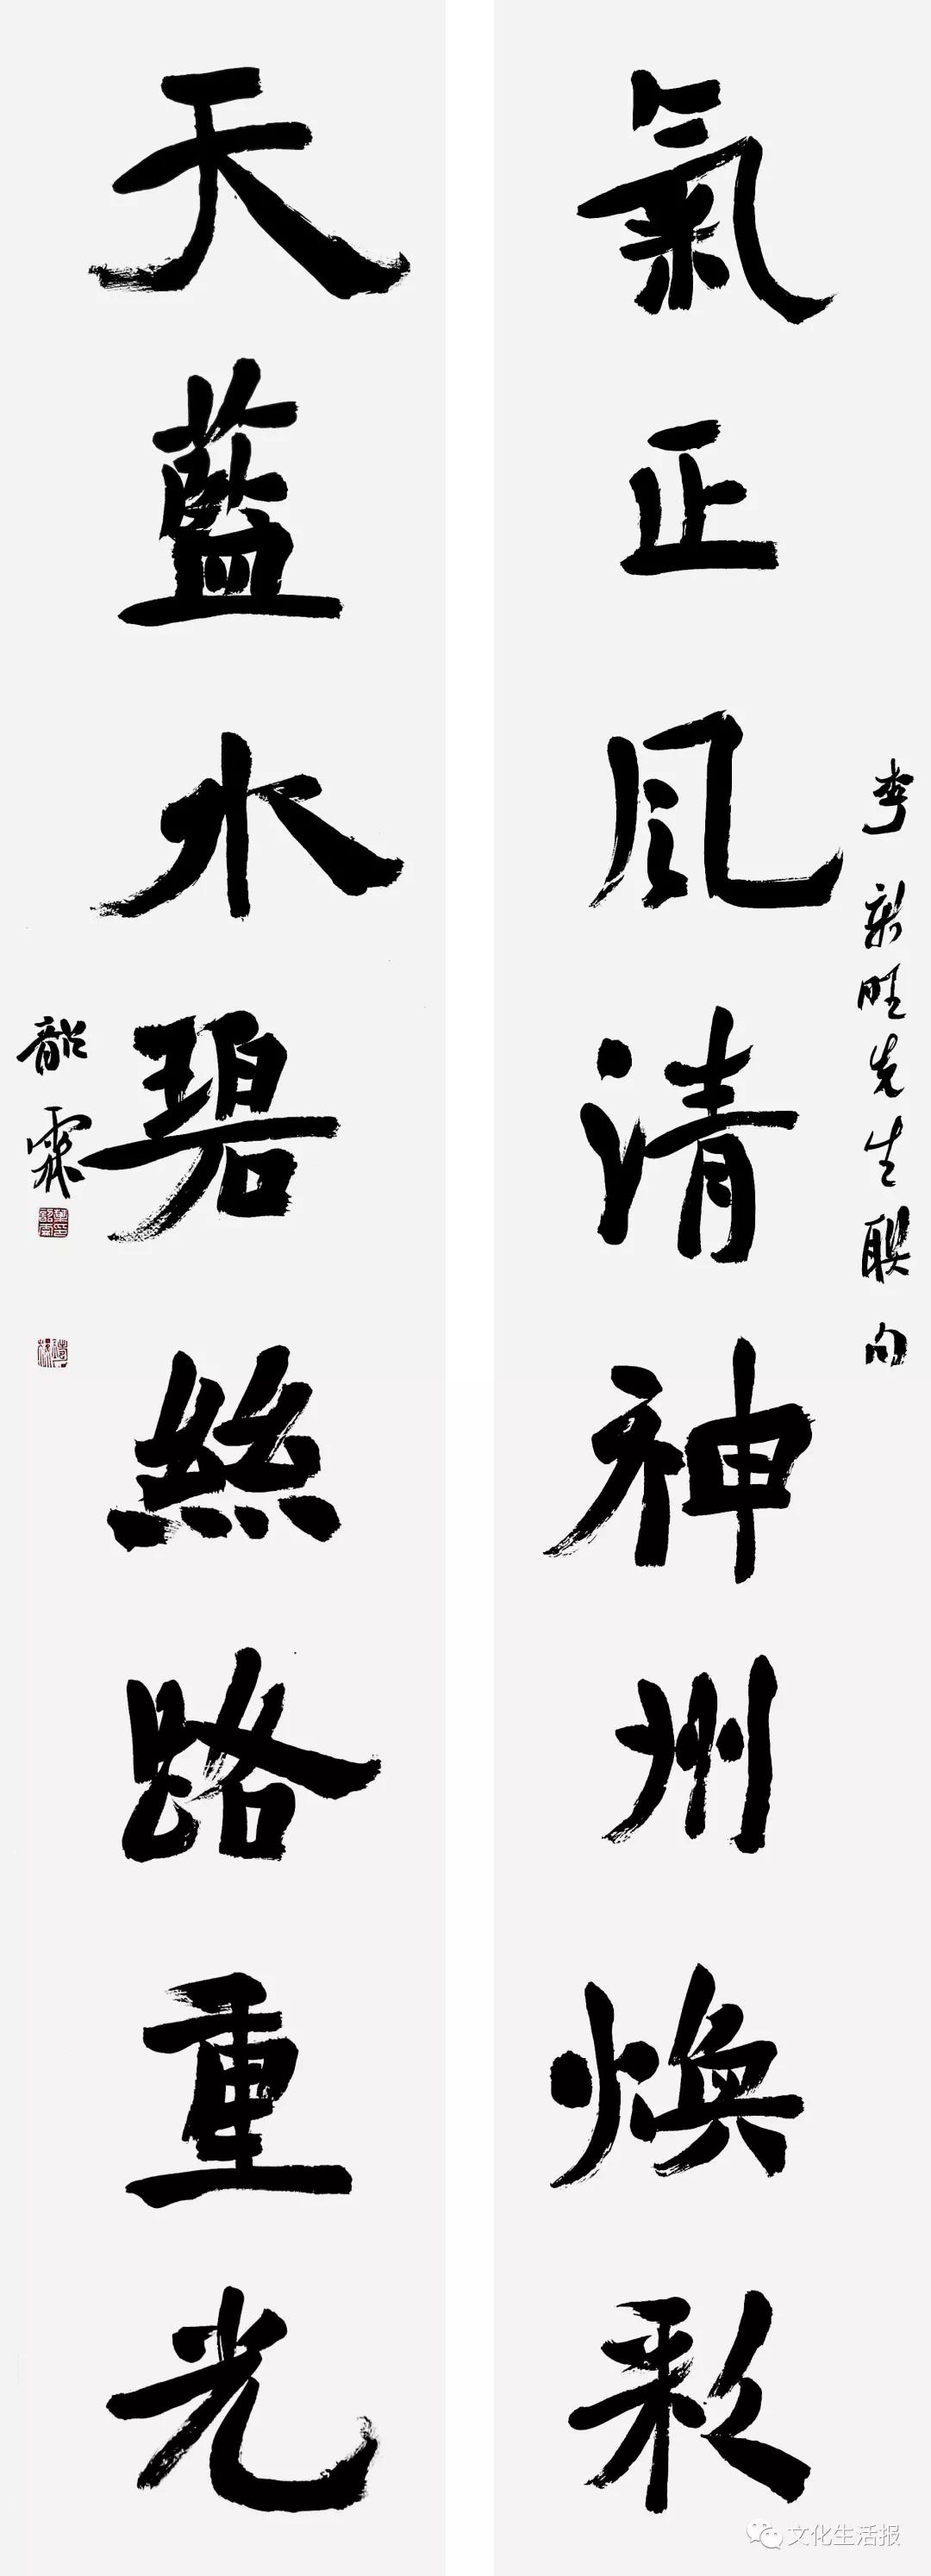 氣正風清神州煥彩
李新旺先生聯句
天藍水碧絲路重光
韶霖
文化生活报